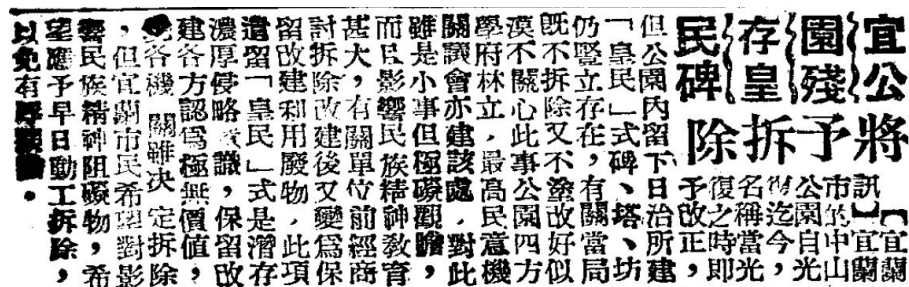 宜公
園殘
存皇
民碑
將予拆除
【宜蘭
訊】宜蘭
市的中山
公園自光
復迄今,
名稱當光
復之時即
予改正,
但公園內留下日治所建
「皇民」式碑、塔、坊
仍豎立存在,有關當局
既不拆除又不塗改好似
漠不關心此事公園四方
學府林立,最高民意機
關議會亦建該處,對此
雖是小事但極礙觀瞻,
而且影響民族精神教育
甚大,有關單位前經商
討拆除改建後又變為保
留改建利用廢物,此項
遺留「皇民」式是潛存
濃厚侵略意識,保留改
建各方認為極無價值,
各機關雖決定拆除
,但宜蘭市民希望對影
響民族精神阻礙物,希
望應予早日動工拆除,
以免有礙觀瞻。